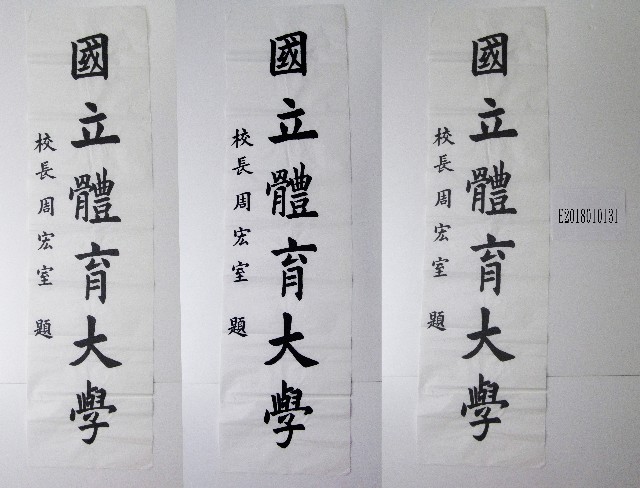 國立體育大學
校長周宏室 題
國立體育大學
校長周宏室 題
國立體育大學
校長周宏室 題
E2018010131